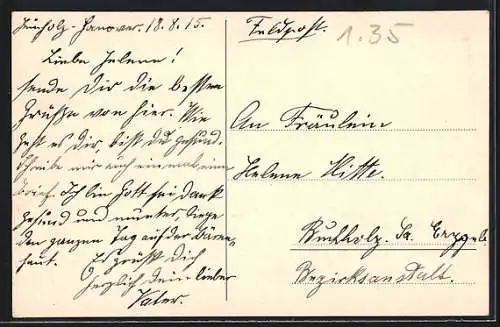 Hannover. 18.8.15.
Liebe Helene!
sende Dir die besten
Grüße von hier. Wie
geht es dir bist du gesund.
Schreibe mir auch einmal einen
Brief. Ich bin Gott sei dank
gesund und munter, liege
den ganzen Tag auf der Bären-
haut. Es grüßt dich
herzlich dein lieber
Vater.
Feldpost.
1.35
An Fräulein
Helene Hitte.
Buchholz. Sa. Erzgeb.
Bezirksanstalt.